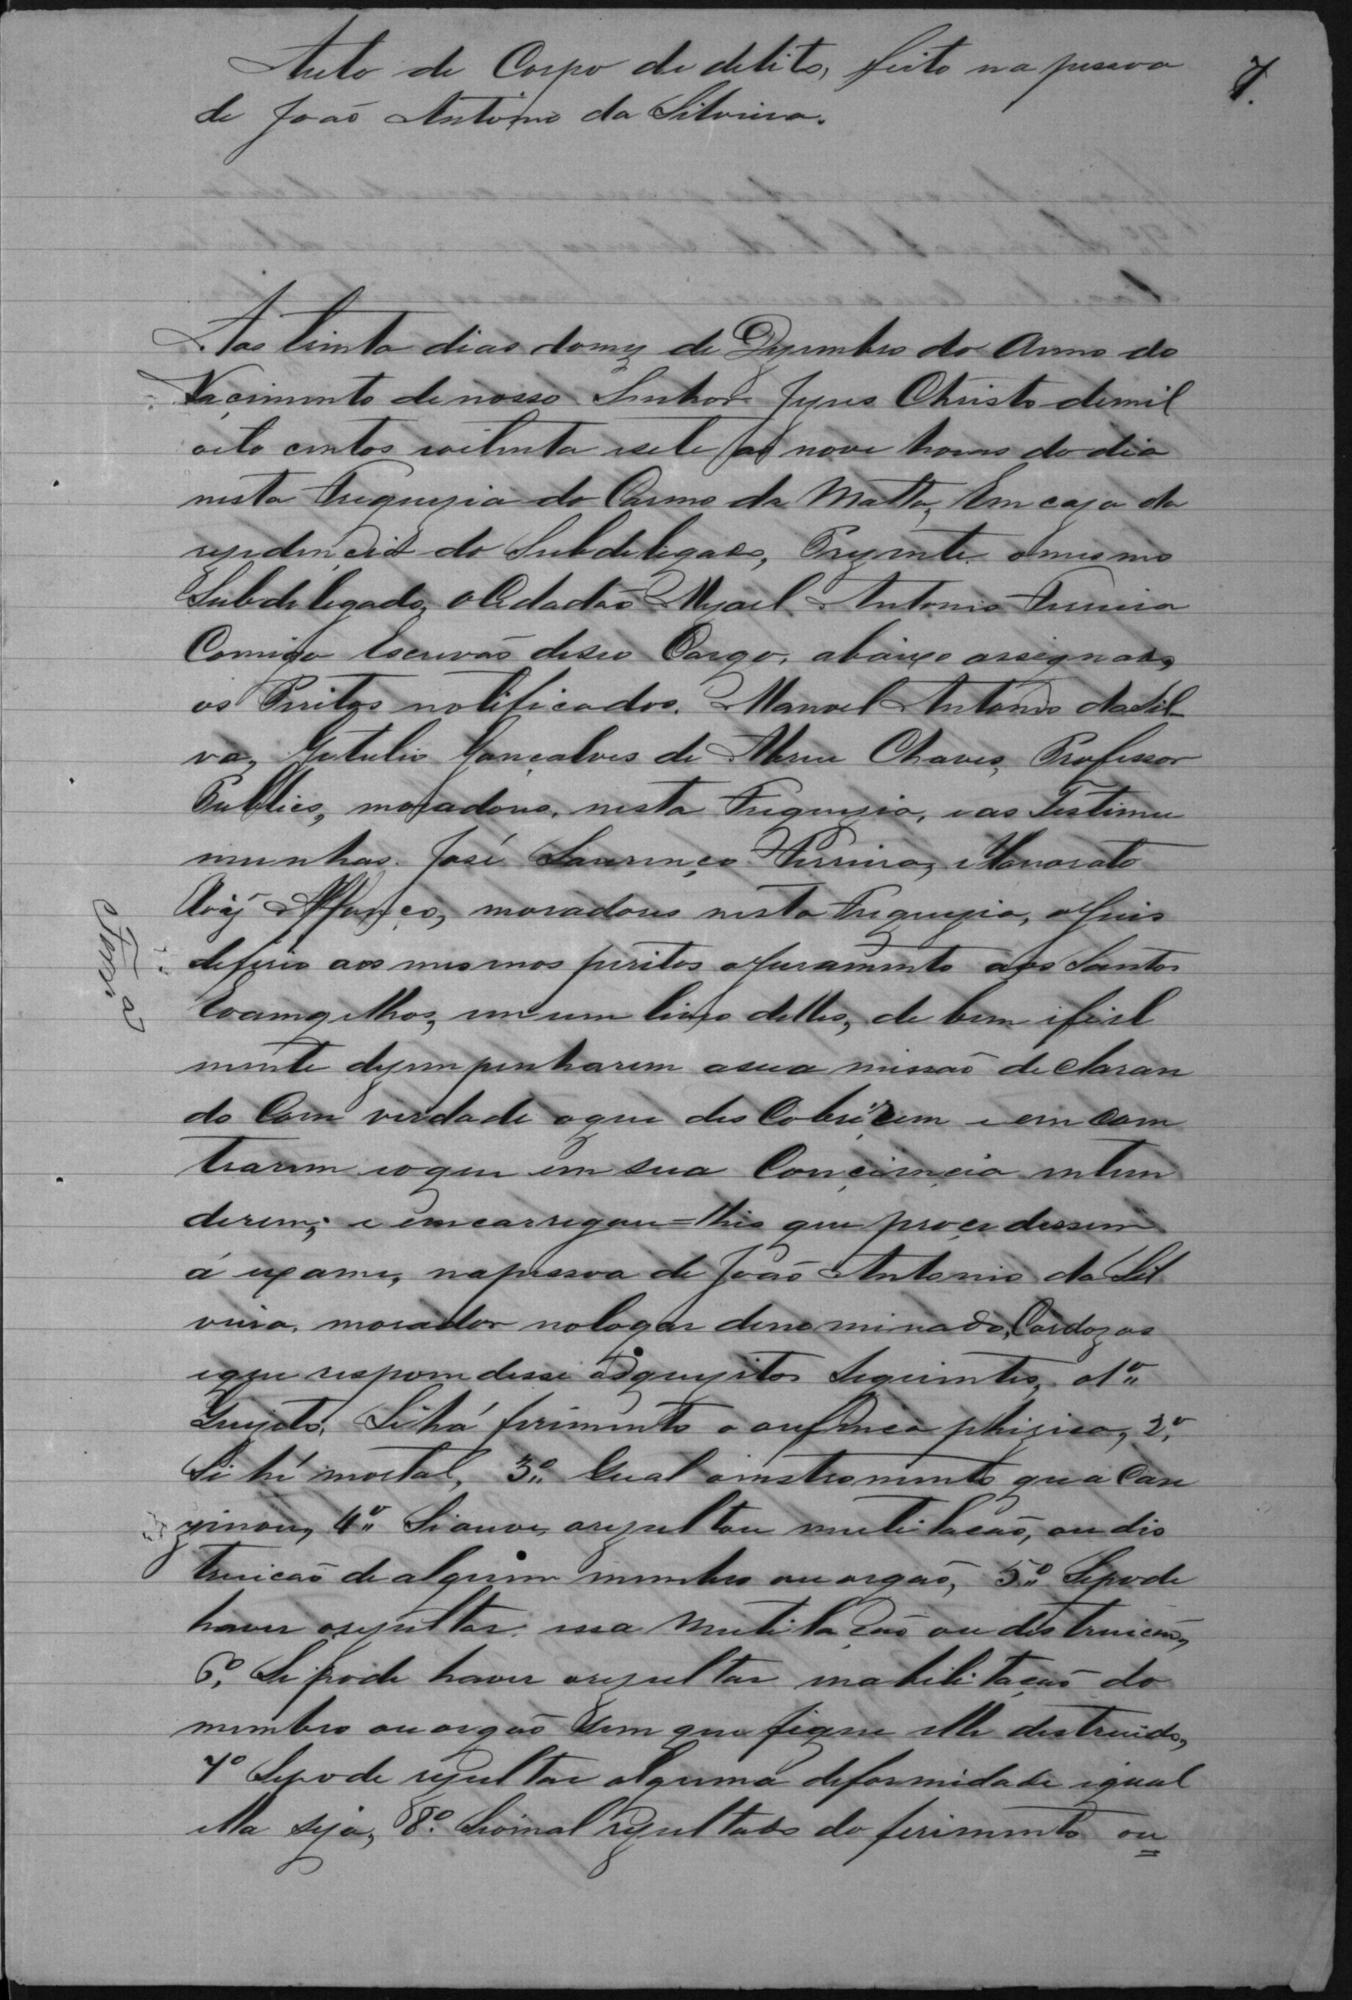 7.
Auto de Corpo de delito, feito na pessoa
de João Antonio da Silveira.
Aos trinta dias domez de Dezembro do Anno do
Nacimento denosso Senhor Jezus Christo demil
oito centos eoitenta esete as nove horas do dia
nesta Freguezia do Carmo da Matta, Em caza da
rezidençia do Subdelegado, Prezente omesmo
Subdelegado, oCidadão Mizael Antonio Ferreira
Comigo Escrivão deseo Cargo, abaixo assignado,
os Peritos notificados. Manoel Antonio da Sil
va, Getulio Gonçalves de Abreu Chaves, Professor
Publico, moradores, nesta Freguezia, eas Testimu
munhas. José Laurenço Ferreira, eHonorato
Affonço, moradores nesta Freguezia, oJuis
deferio aos mesmos peritos oJuramento aos Santos
Evamgelhos, em um livro delles, de bem efiel
mente dezempenharem asua missão declaran
do Com verdade oque desCobrirem eemcom
trarem eoque em sua Conçiencia entem
derem; e emcarregou=lhes que proçedessem
á exame, napessoa de João Antonio da Sil
veira, morador nologar denominado, Cardozos
eque respomdesse osquezitos Seguintes, o1º
Quezito, Sihá ferimento o oufença phizica, 2º,
Si hé mortal, 3º. Qual oinstromento que a Cau
zionou, 4º Siouve, orezultou mutilacão, ou dis
truicão dealguim membro ouorgão, 5º. Sepode
haver orezultar. essa Mutilação oudestruicão,
6º, Sipode haver orezultar inabilitação do
membro ouorgão sem que fique elle destruido,
7º Sepode rezultar alguma deformidade equal
ella seja, 8º. Siomal rezultado do ferimento ou